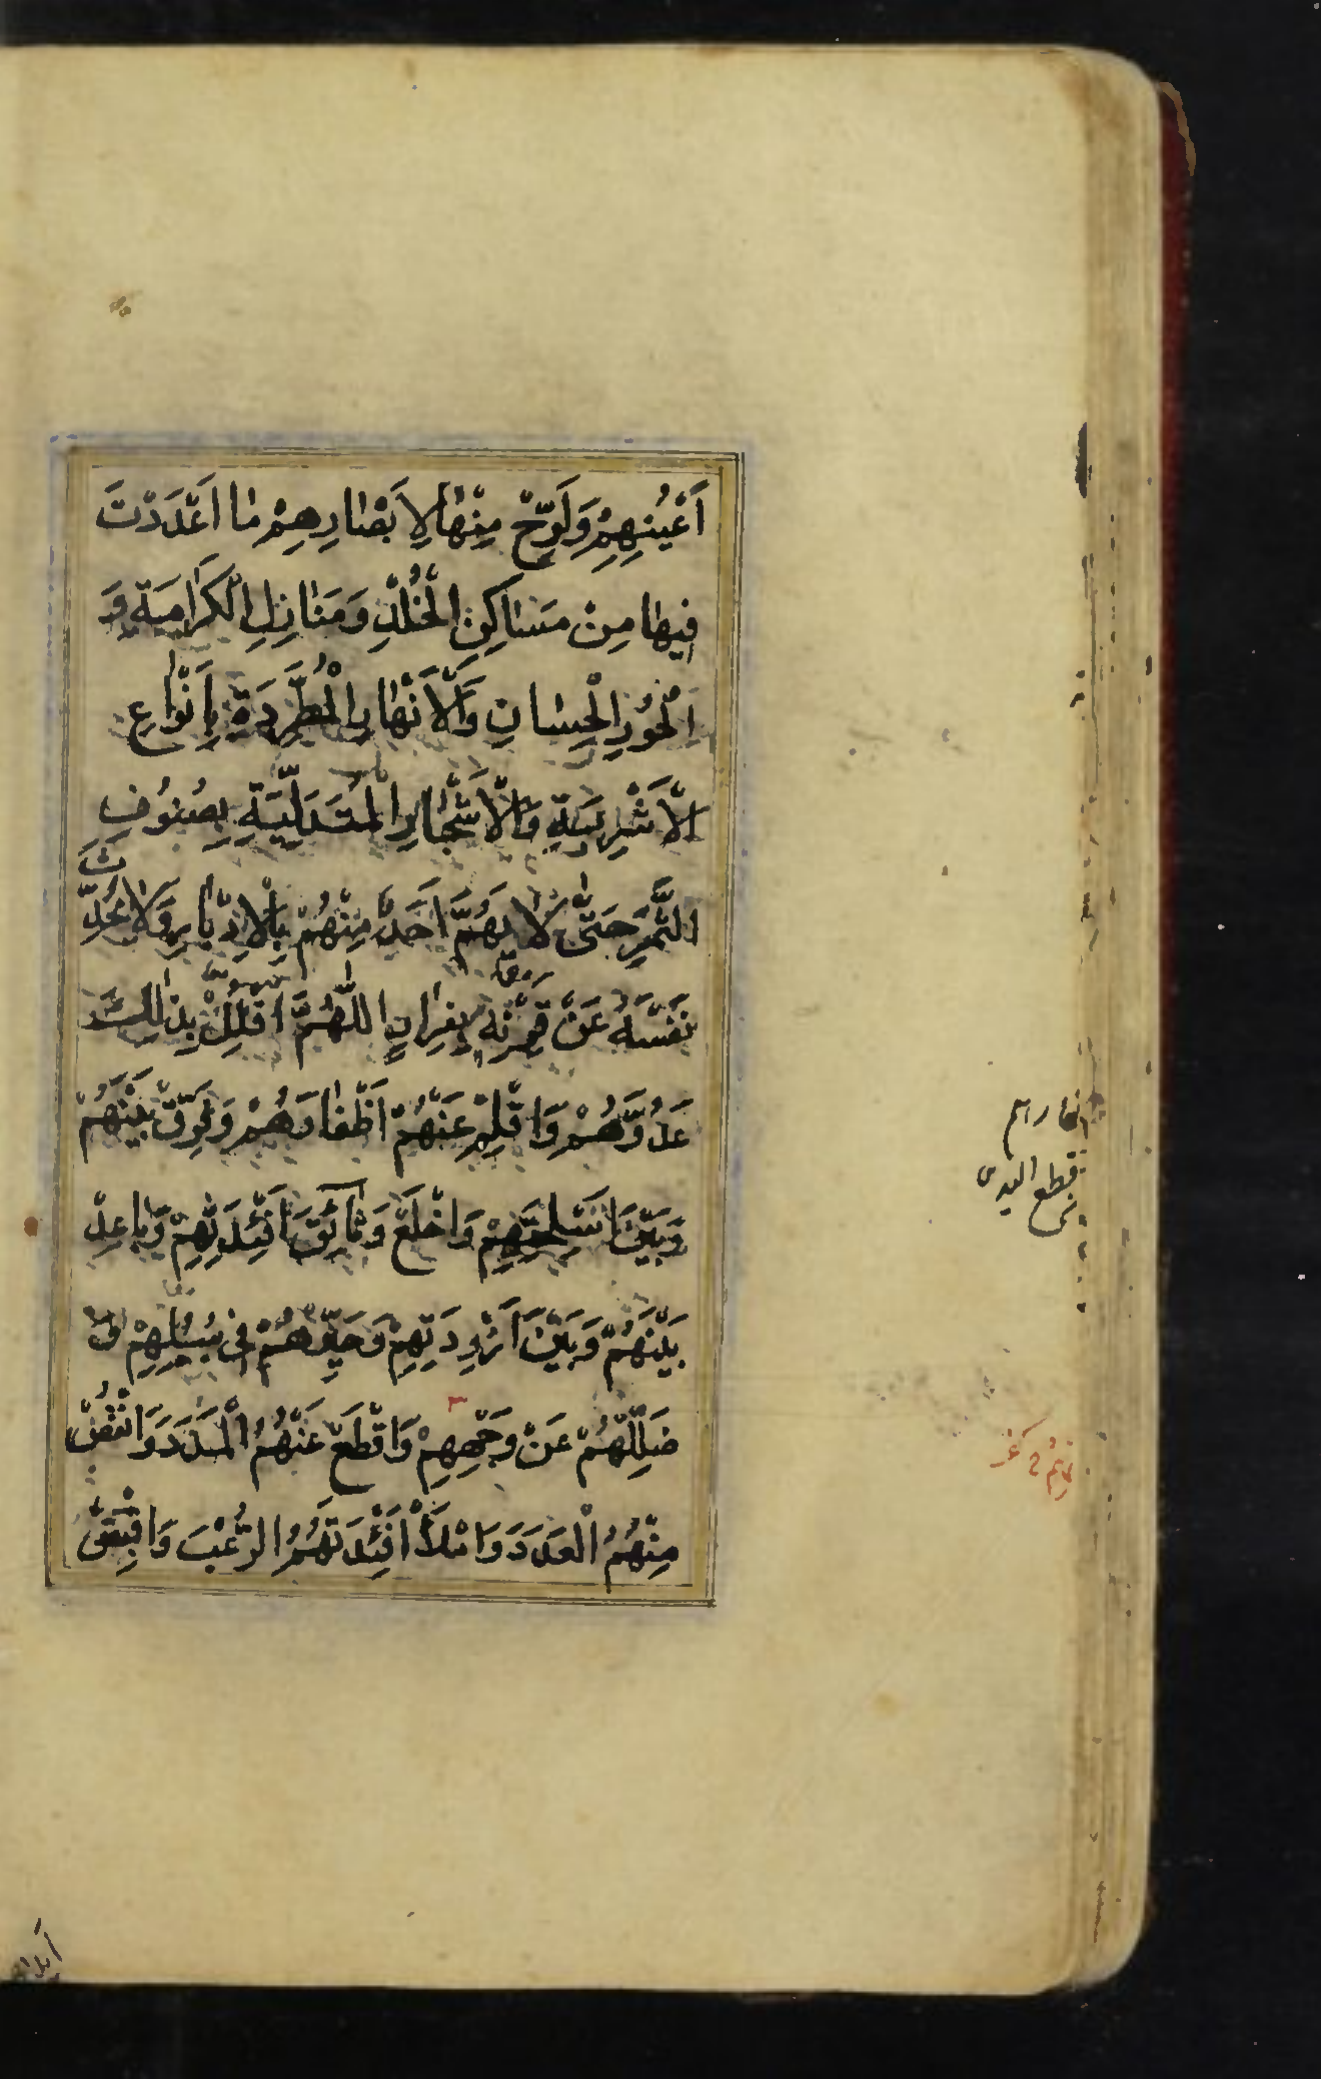 اَعْيُنِهِمْ وَلَوِّحْ مِنْهٰا لِاَبْصٰارِهِمْ مٰا اَعْدَدْتَ
فِيهٰا مِنْ مَسٰاكِنِ الْخُلْدِ وَمَنٰازِلِ الْكَرٰامَةِ وَ
الْحُورِ الْحِسٰانِ وَالْاَنْهٰارِ الْمُطَّرِدَةِ بِاَنْوٰاعِ
الْاَشْرِبَةِ وَالْاَشْجٰارِ الْمُتَدَلِّيَةِ بِصُنُوفِ
الثَّمَرِ حَتّٰى لٰا يَهُمَّ اَحَدٌ مِنْهُمْ بِالْاِدْبٰارِ وَلٰا يُحَدِّثَ
نَفْسَهُ عَنْ قِرْنِهِ بِفِرٰارٍ اللّٰهُمَّ افْلُلْ بِذٰلِكَ
عَدُوَّهُمْ وَاقْلِمْ عَنْهُمْ اَظْفٰارَهُمْ وَفَرِّقْ بَيْنَهُمْ
وَبَيْنَ اَسْلِحَتِهِمْ وَاخْلَعْ وَثٰائِقَ اَفْئِدَتِهِمْ وَبٰاعِدْ
بَيْنَهُمْ وَبَيْنَ اَزْوِدَتِهِمْ وَحَيِّرْهُمْ فِي سُبُلِهِمْ وَ
ضَلِّلْهُمْ عَنْ وَجْهِهِمْ وَاقْطَعْ عَنْهُمُ الْمَدَدَ وَانْقُصْ
مِنْهُمُ الْعَدَدَ وَامْلَأْ اَفْئِدَتَهُمُ الرُّعْبَ وَاقْبِضْ